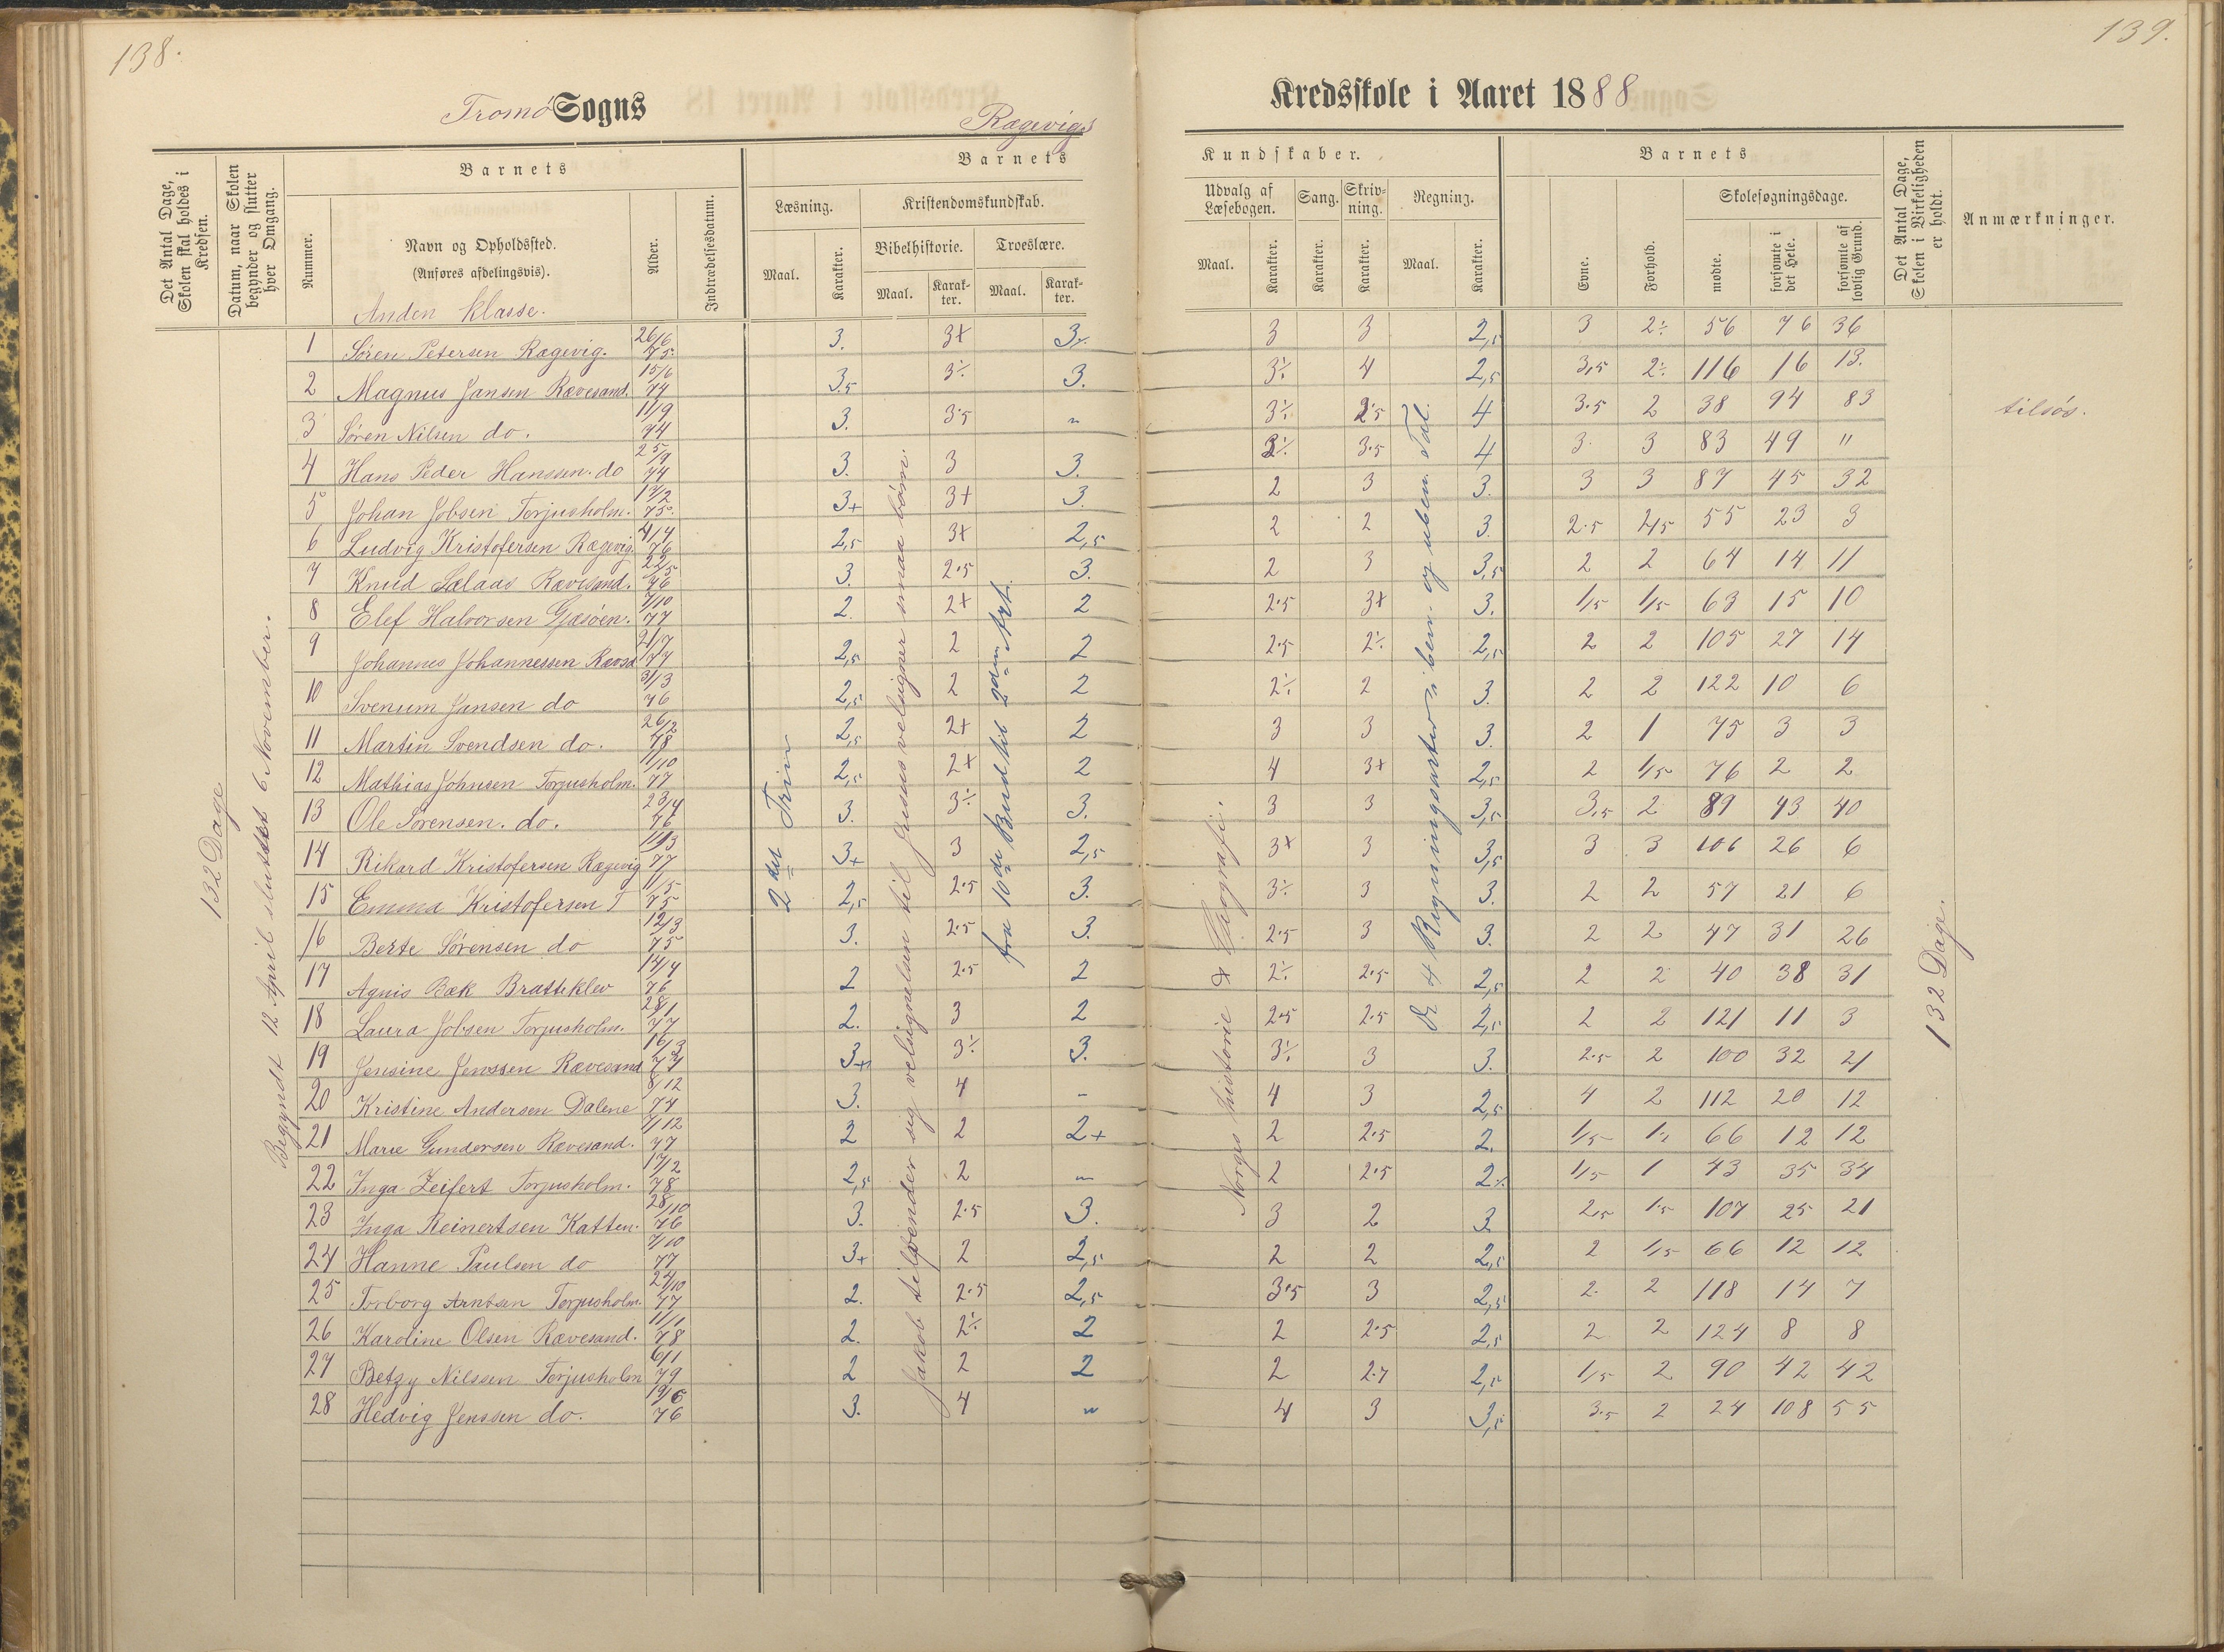 138.
139.
Tromø Sogns
Rægevigs
Kredsskole i Aaret 1888
Det Antal Dage, Skolen skal holdes i Kredsen.
Datum, naar Skolen begynder og slutter hver Omgang.
Nummer.
Barnets
Navn og Opholdssted.
(Anføres afdelingsvis).
Alder.
Indtrædelsesdatum.
Barnets
Læsning.
Kristendomskundskab.
Maal.
Karakter.
Bibelhistorie.
Troeslære.
Maal.
Karak-ter.
Maal.
Karak-ter.
Kundskaber.
Udvalg af Læsebogen.
Sang.
Skriv-ning.
Regning.
Maal.
Karakter.
Karakter.
Karakter.
Maal.
Karakter.
Barnets
Evne.
Forhold.
Skolesøgningsdage.
mødte.
forsømte i det Hele.
forsømte af lovlig Grund.
Det Antal Dage, Skolen i Virkeligheden er holdt.
Anmærkninger.
Anden Klasse.
132 Dage
Begyndt 12 April sluttet 6 November.
2det Trin
Jakob tilvender sig velsignelsen til Jesus velsigner smaa børn.
fra 10de Bud til 2den Art.
Norges historie & Geografi.
De 4 Regningsarter i ben. og uben. Tal.
132 Dage.
1 Søren Petersen Rægevig. 26/6 75. 3. 3+ 3÷ 3 3 2,5 3 2÷ 56 76 36
2 Magnus Jansen Rævesand. 15/6 74 3.5 3÷ 3. 3÷ 4 2,5 3,5 2÷ 116 16 13.
3 Søren Nilsen do. 11/9 74 3. 3.5 " 3÷ 2.5 4 3.5 2 38 94 83 tilsøs.
4 Hans Peder Hanssen. do 25/9 74 3. 3 3. 3÷ 3.5 4 3. 3 83 49 "
5 Johan Jobsen Torjusholm. 17/2 75. 3+ 3+ 3. 2 3 3. 3 3 87 45 32
6 Ludvig Kristofersen Rægevig. 4/4 76 2,5 3+ 2,5 2 2 3. 2.5 2,5 55 23 3
7 Knud Salaas Rævesand. 22/5 76 3. 2.5 3. 2 3 3,5 2 2 64 14 11
8 Elef Halvorsen Gjæsøen. 7/10 77 2. 2+ 2 2.5 3+ 3. 1/5 1/5 63 15 10
9 Johannes Johannessen Ravsd 21/7 77 2,5 2 2 2.5 2÷ 2,5 2 2 105 27 14
10 Svenum Jansen do 31/3 76 2,5 2 2 2÷ 2 3. 2 2 122 10 6
11 Martin Svendsen do. 26/2 78 2,5 2+ 2 3 3 3. 2 1 75 3 3
12 Mathias Johnsen Torjusholm. 11/10 77 2,5 2+ 2 4 3+ 2,5 2 1/5 76 2 2
13 Ole Sørensen. do. 23/4 76 3. 3÷ 3. 3 3 3,5 3,5 2 89 43 40
14 Rikard Kristofersen Rægevig 11/3 77 3+ 3 2,5 3+ 3 3,5 3 3 106 26 6
15 Emma Kristofersen T 11/5 75 2,5 2.5 3. 3÷ 3 3. 2 2 57 21 6
16 Berte Sørensen do 12/3 75 3. 2.5 3. 2.5 3 3. 2 2 47 31 26
17 Agnis Bæk Bratteklev 14/4 76 2 2.5 2 2÷ 2.5 2,5 2 2 40 38 31
18 Laura Jobsen Torjusholm. 28/1 77 2. 3 2 2.5 2.5 2,5 2 2 121 11 3
19 Jensine Jenssen Rævesand 16/3 77 3+ 3÷ 3. 3÷ 3 3. 2.5 2 100 32 21
20 Kristine Andersen Dalene 8/12 74 3. 4 - 4 3 2,5 4 2 112 20 12
21 Marie Gundersen Rævesand. 7/12 77 2 2 2+ 2 2.5 2. 1/5 1÷ 66 12 12
22 Inga Zeifert Torjusholm. 17/2 78 2,5 2 " 2 2.5 2÷ 1/5 1 43 35 34
23 Inga Reinertsen Katten. 28/10 76 3. 2.5 3. 3 2 3 2,5 1.5 107 25 21
24 Hanne Paulsen do 7/10 77 3+ 2 2,5 2 2 2,5 2 1/5 66 12 12
25 Torborg Arntsen Torjusholm. 24/10 77 2. 2.5 2,5 3.5 3 2,5 2. 2 118 14 7
26 Karoline Olsen Rævesand. 11/1 78 2. 2÷ 2 2 2.5 2,5 2 2 124 8 8
27 Betzy Nilssen Torjusholm 6/1 79 2 2 2 2 2.7 2,5 1/5 2 90 42 42
28 Hedvig Jenssen do. 19/6 76 3. 4 " 4 3 3,5 3.5 2 24 108 55